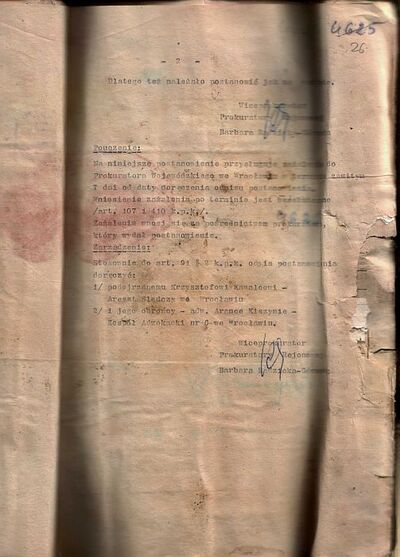 4625
26
- 2 -
Dlatego też należało postanowić jak na
Wiceprokurator
Prokuratury
Barbara
Pouczenie:
Na niniejsze postanowienie przysługuje zażalenie do
Prokuratora Wojewódzkiego we Wrocławiu w terminie zawitym
7 dni od daty doręczenia odpisu postanowienia.
Wniesienie zażalenia po terminie jest bezskuteczne
/art. 107 i 410 k.p.k./.
Zażalenie wnosi się za pośrednictwem
który wydał postanowienie.
Zarządzenie:
Stosownie do art. 91 § 2 k.p.k. odpis postanowienia
doręczyć:
1/ podejrzanemu Krzysztofowi Kawalcowi -
Areszt Śledczy we Wrocławiu
2/ i jego obrońcy - adw. Aranee Kiszynie -
Zespół Adwokacki nr 6 we Wrocławiu.
Wiceprokurator
Prokuratury Rejonowej
Barbara